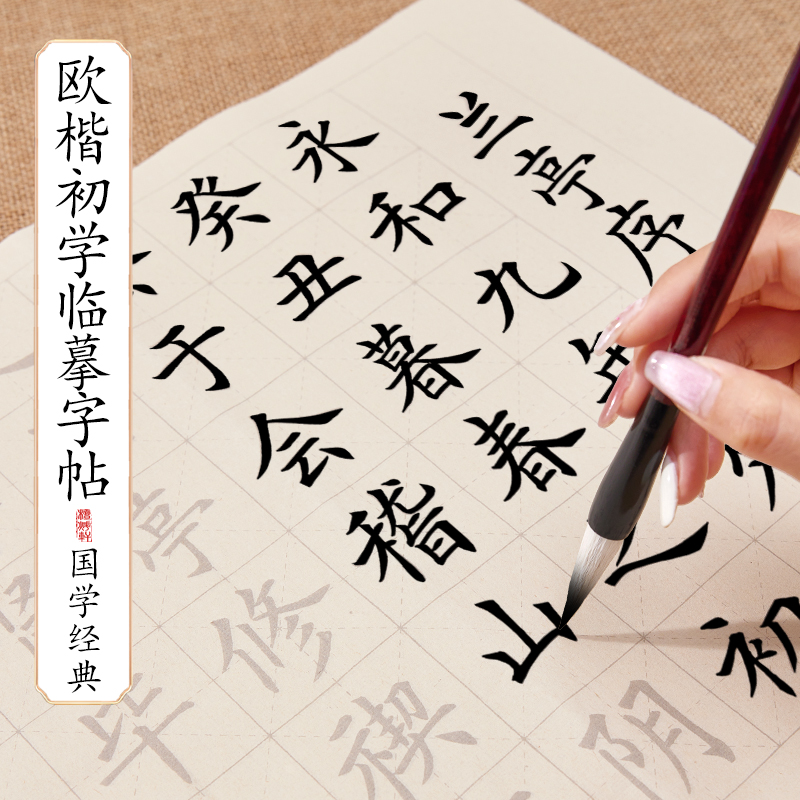 兰亭序
永和九年
癸丑暮春之初
于会稽山阴
亭修禊
贤毕
欧楷初学临摹字帖
国学经典